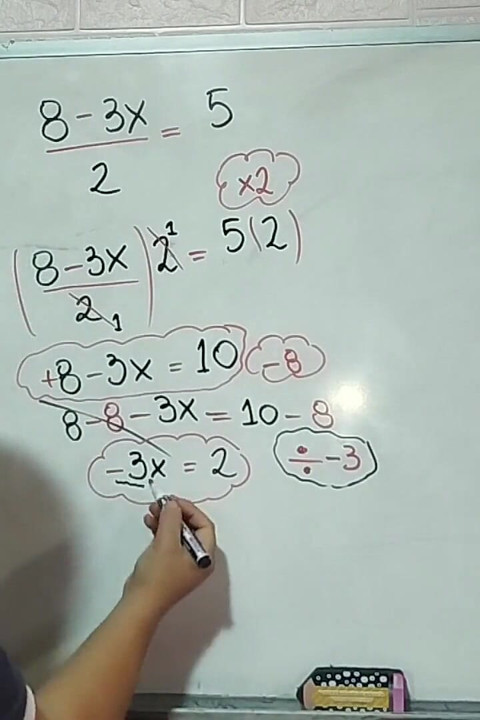 8 - 3x
= 5
2
×2
(8 - 3x / 2 1) 2 1 = 5(2)
+8 - 3x = 10 -8
8 - 8 - 3x = 10 - 8
-3x = 2 ÷ -3